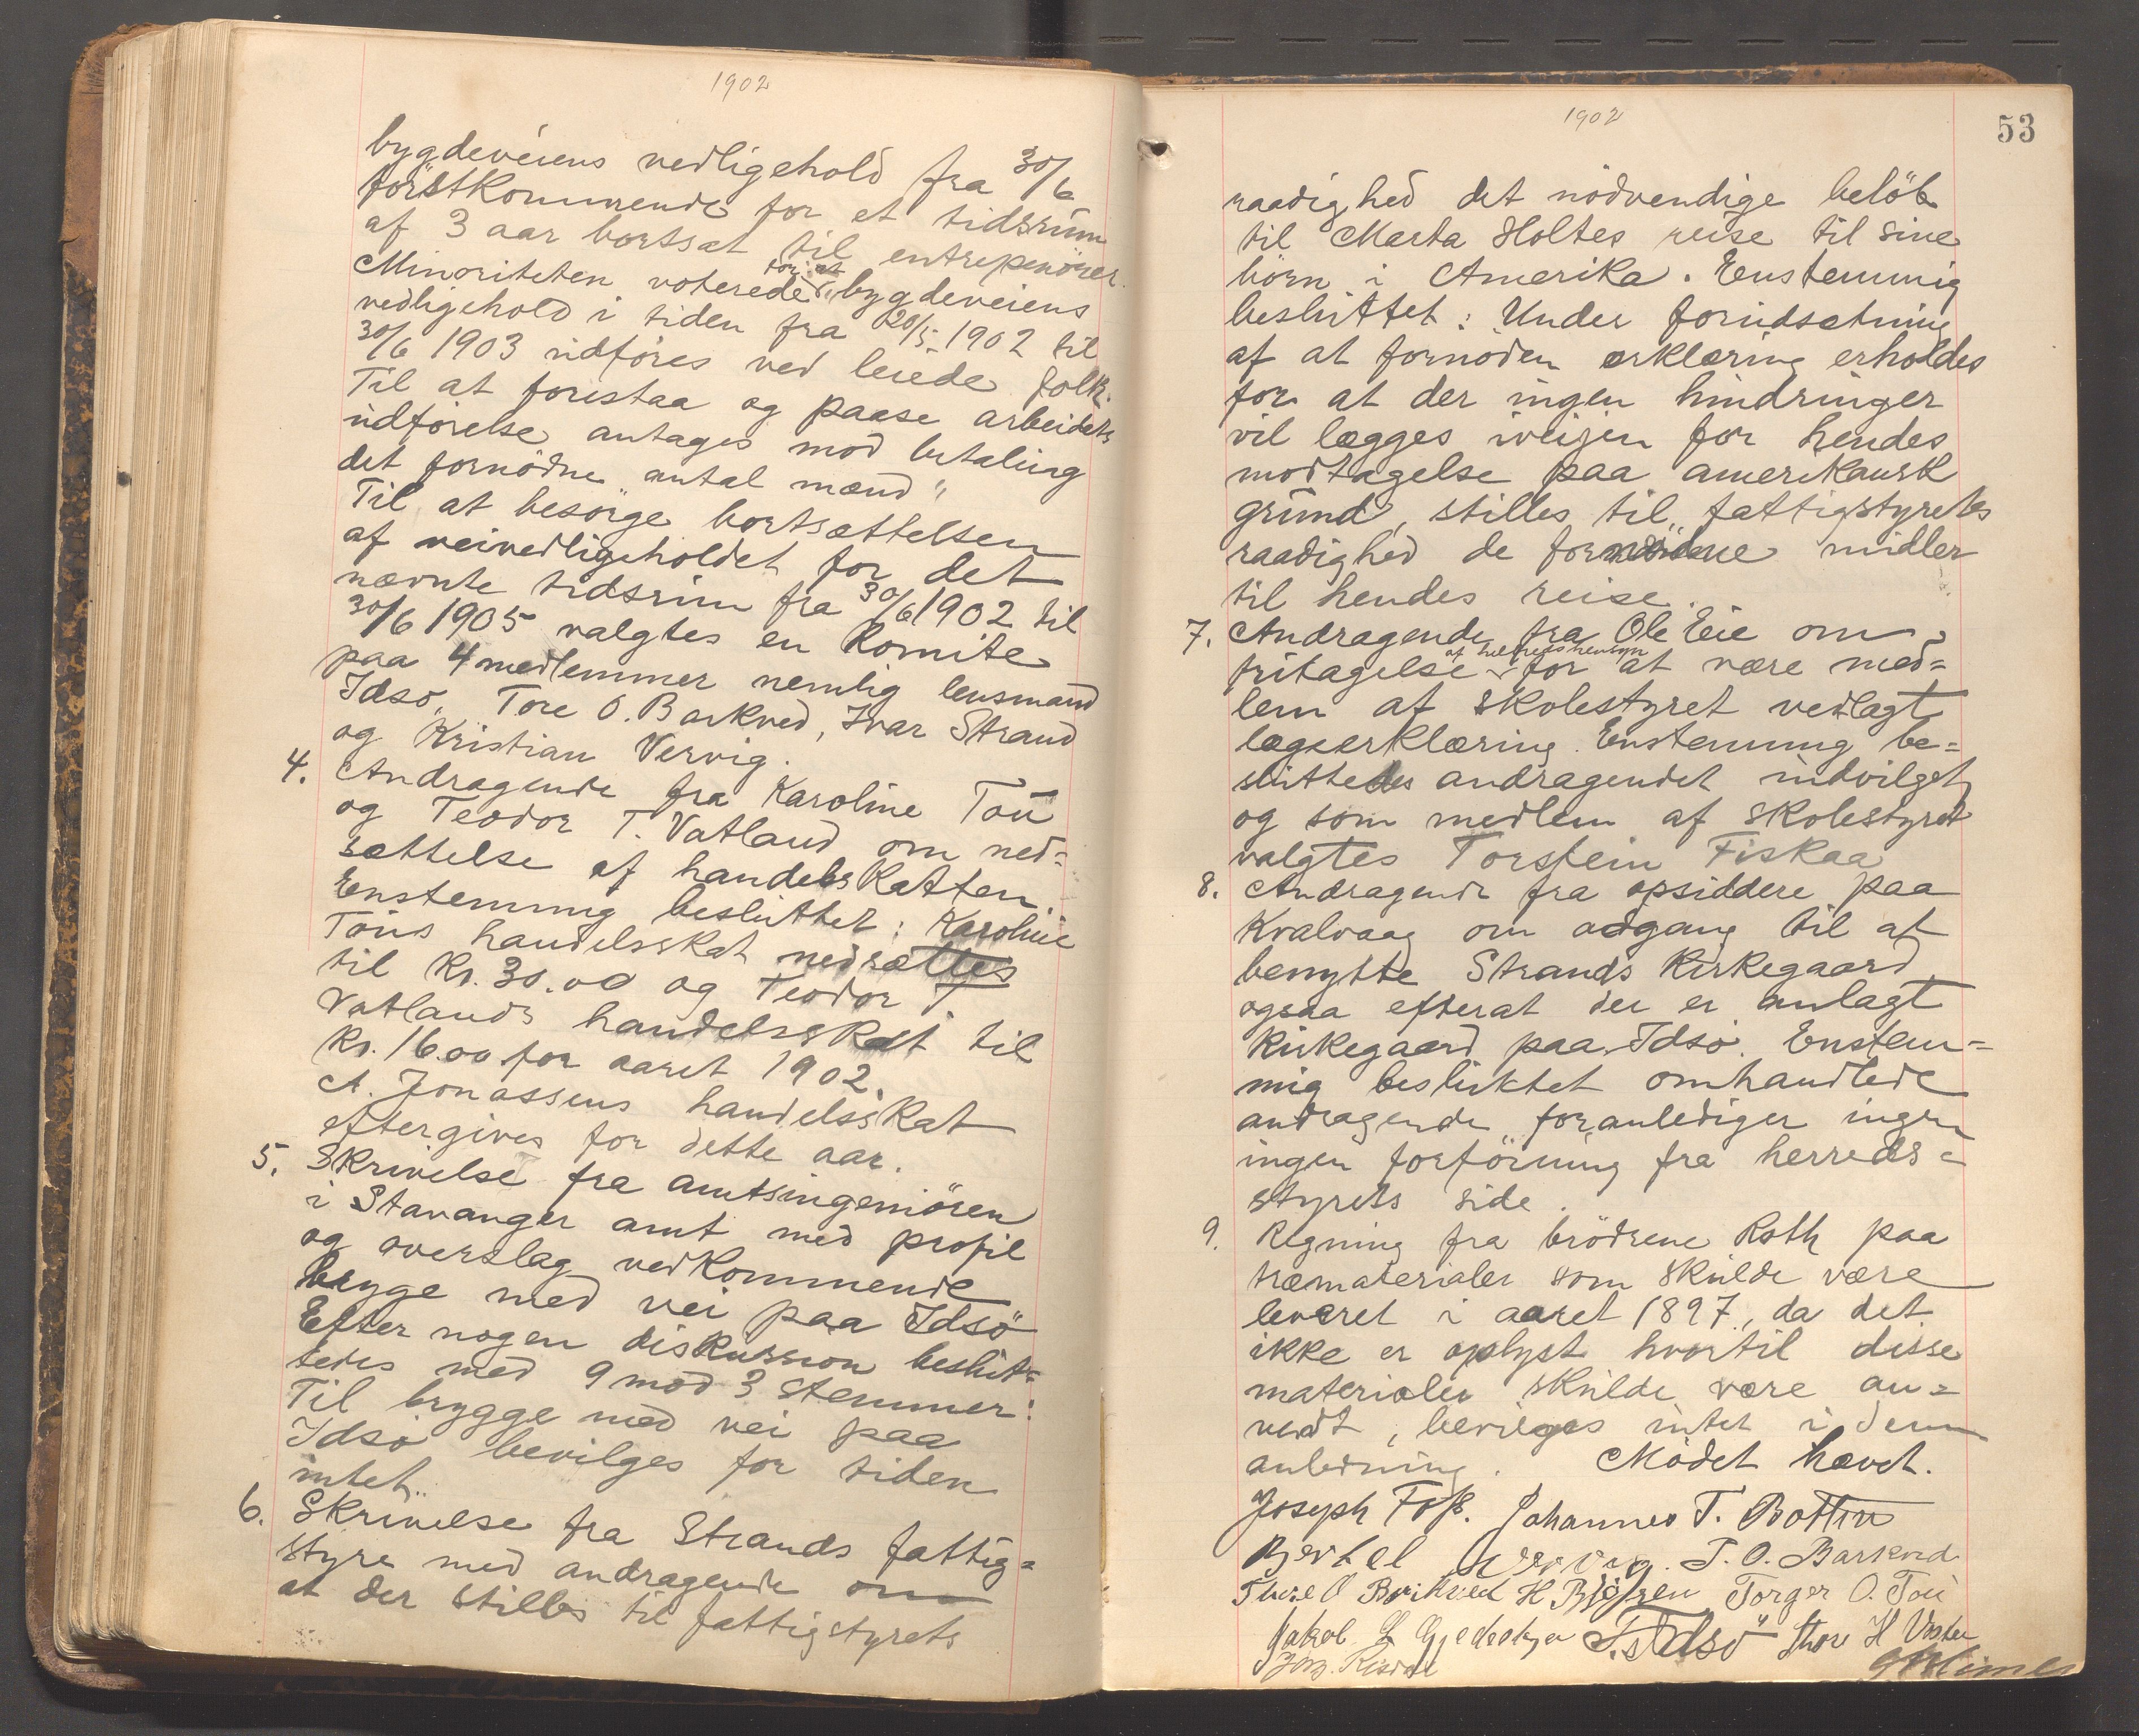 1902
bygdeveiens vedligehold fra 30/6
förstkommende for et tidsrum
af 3 aar bortsat til entrepenörer.
Minoriteten voterede for at bygdeveiens
vedligehold i tiden fra 20/5 1902 til
30/6 1903 udföres ved leiede folk.
Til at forestaa og paase arbeidets
udförelse antages mod betaling
det fornödne antal mænd"
Til at besörge bortsættelsen
af veivedligeholdet for det
nævnte tidsrum fra 30/6 1902 til
30/6 1905 valgtes en Komite
paa 4 medlemmer nemlig lensmand
Idsö, Tore O. Barkved, Ivar Strand
og Kristian Vervig.
4. Andragende fra Karoline Tou
og Teodor T. Vatland om ned=
sættelse af handelsskatten.
Enstemmig besluttet: Karoline
Tous handelsskat nedsættes
til Kr. 30.00 og Teodor T
Vatlands handelsskat til
Kr. 16.00 for aaret 1902.
A. Jonassens handelsskat
eftergives for dette aar.
5. Skrivelse fra amtsingeniören
i Stavanger amt med profil
og overslag vedkommende
brygge med vei paa Idsö
Efter nogen diskussion beslut=
tedes med 9 mod 3 stemmer:
Til brygge med vei paa
Idsö bevilges for tiden
intet.
6. Skrivelse fra Strands fattig=
styre med andragende om
at der stilles til fattigstyrets
1902
53
raadighed det nödvendige belöb
til Marta Holtes reise til sine
börn i Amerika. Enstemmig
besluttet: Under forudsætning
af at fornöden erklæring erholdes
for at der ingen hindringer
vil lægges iveigen for hendes
modtagelse paa amerikansk
grund, stilles til fattigstyrets
raadighed de fornödne midler
til hendes reise.
7. Andragende fra Ole Eie om
fritagelse af helbredshensyn for at være med=
lem af skolestyret vedlagt
lægeerklæring. Enstemmig be=
sluttedes andragendet indvilget
og som medlem af skolestyret
valgtes Torstein Fiskaa
8. Andragende fra opsiddere paa
Kvalvaag om adgang til at
benytte Strands Kirkegaard
ogsaa efterat der er anlagt
Kirkegaard paa Idsö. Enstem=
mig besluktet omhandlede
andragende foranlediger ingen
ingen forföining fra herreds=
styrets side.
9. Regning fra brödrene Roth paa
træmaterialer som skulde være
leveret i aaret 1897, da det
ikke er oplyst hvortil disse
materialer skulde være an=
vendt, bevilges intet i den
anledning. Mödet hævet.
Joseph Foss. Johannes T. Botten
Bertel Vervig. T. O. Barkved
O Barkved H Björen Torger O. Tou
Jakob L T. Idsö Thore H